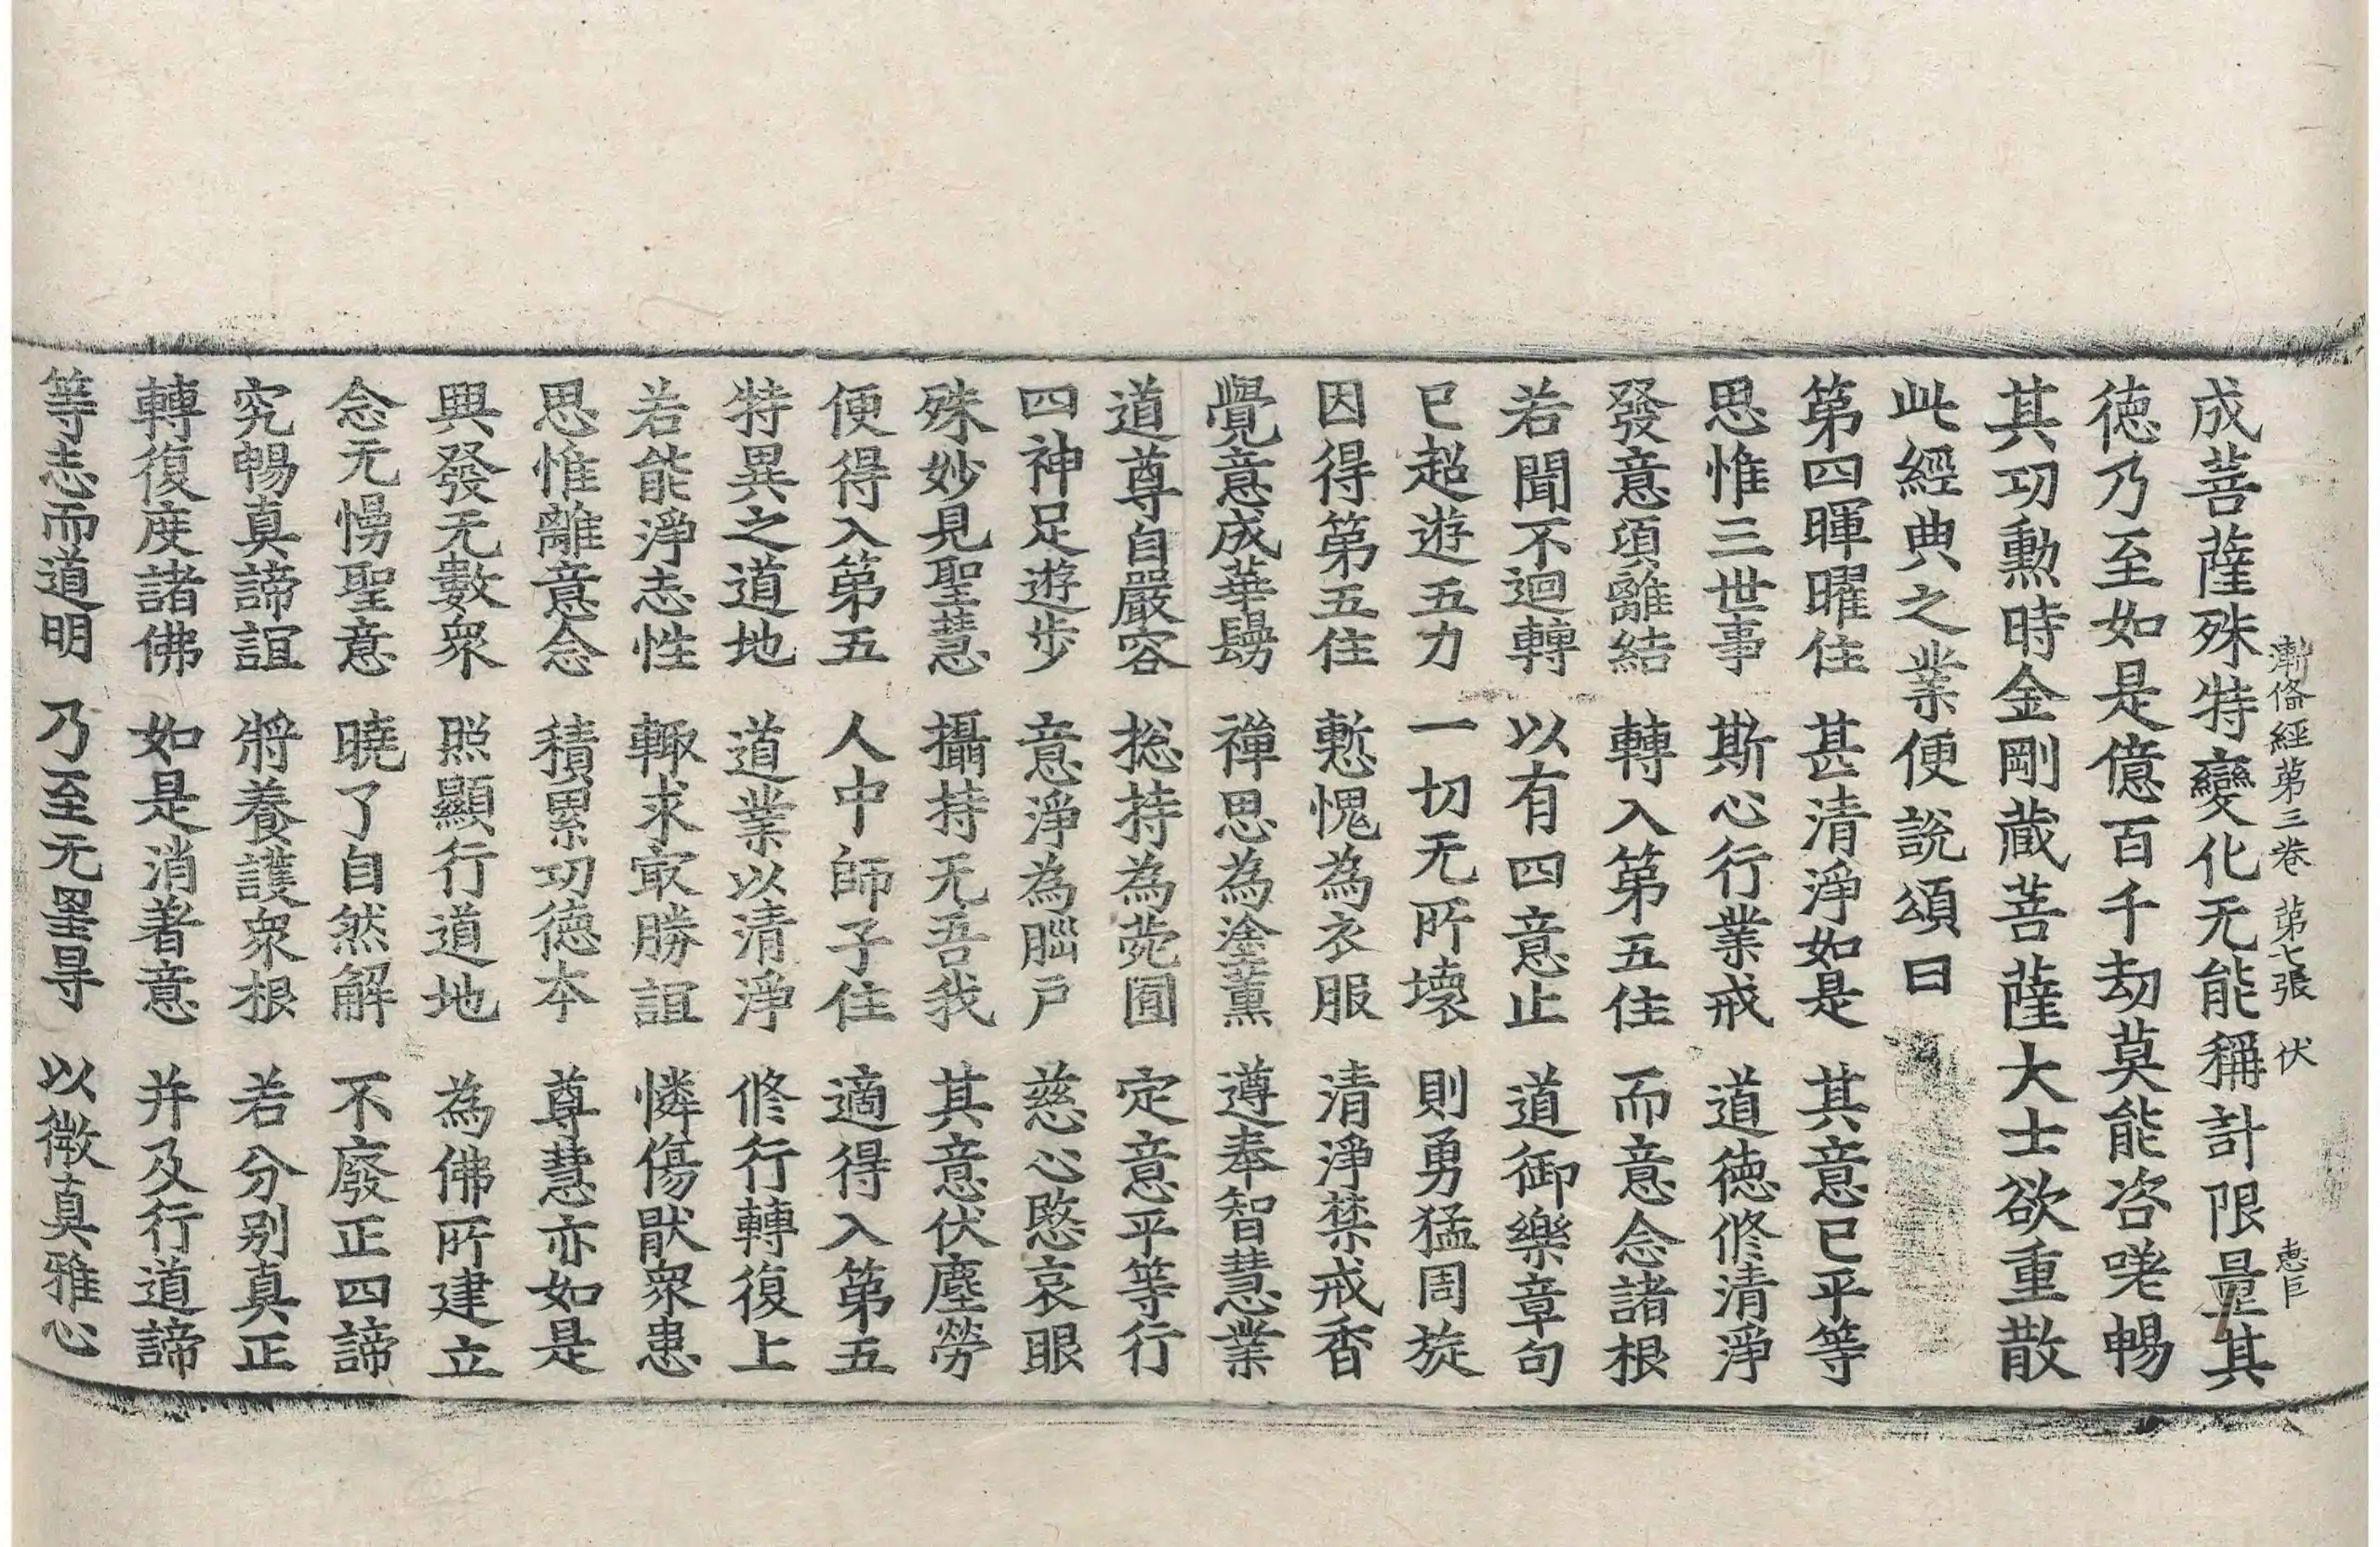 漸俻經第三卷 第七張 伏 惠臣
成菩薩殊特變化无能稱計限量其
德乃至如是億百千劫莫能咨嗟暢
其功勳時金剛藏菩薩大士欲重散
此經典之業便說頌曰
第四暉曜住 甚清淨如是 其意已平等
思惟三世事 斯心行業戒 道德修清淨
發意須離結 轉入第五住 而意念諸根
若聞不迴轉 以有四意止 道御樂章句
已超遊五力 一切无所壞 則勇猛周旋
因得第五住 慙愧為衣服 清淨禁戒香
覺意成華鬘 禪思為塗薰 遵奉智慧業
道尊自嚴容 捴持為菀園 定意平等行
四神足遊步 意淨為𦜖戶 慈心愍哀眼
殊妙見聖慧 攝持无吾我 其意伏塵勞
便得入第五 人中師子住 適得入第五
特異之道地 道業以清淨 修行轉復上
若能淨志性 輙求㝡勝誼 憐傷猒衆患
思惟離意念 積累功德本 尊慧亦如是
興發无數衆 照顯行道地 為佛所建立
念无慢聖意 曉了自然解 不廢正四諦
究暢真諦誼 將養護衆根 若分别真正
轉復度諸佛 如是消著意 并及行道諦
等志而道明 乃至无罣㝵 以微真雅心